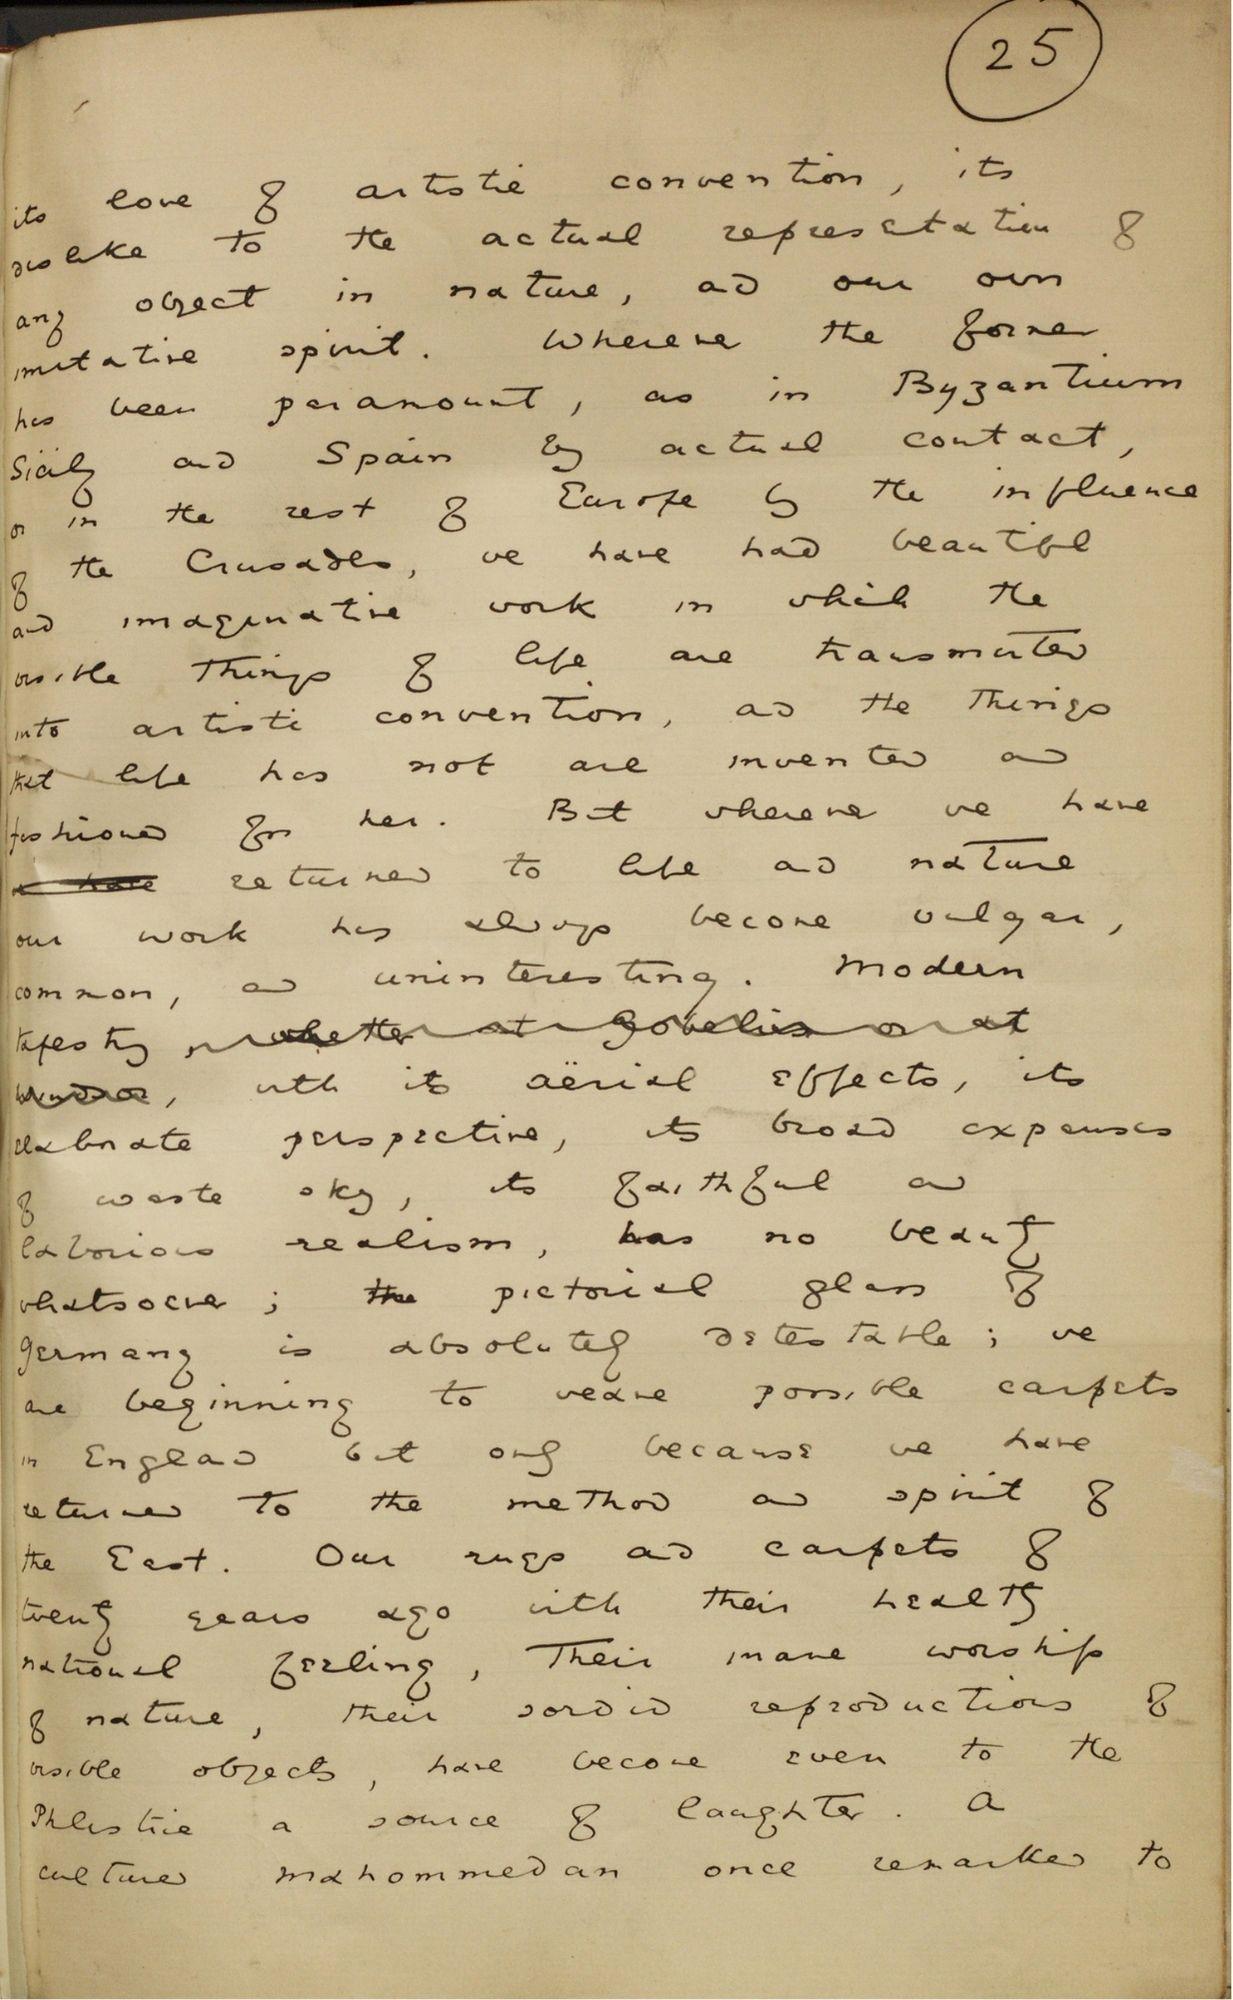 25
its love of artistic convention, its
dislike to the actual representation of
any object in nature, and our own
imitative spirit. Wherever the former
has been paramount, as in Byzantium
Sicily and Spain by actual contact,
or in the rest of Europe by the influence
of the Crusades, we have had beautiful
and imaginative work in which the
visible things of life are transmuted
into artistic convention, and the things
that life has not are invented and
fashioned for her. But wherever we have
returned to life and nature
our work has always become vulgar,
common, and uninteresting. Modern
tapestry, whether at Gobelins or at
Windsor, with its aërial effects, its
elaborate perspective, its broad expanses
of waste sky, its faithful and
laborious realism, has no beauty
whatsoever; the pictorial glass of
Germany is absolutely detestable; we
are beginning to weave possible carpets
in England but only because we have
returned to the method and spirit of
the East. Our rugs and carpets of
twenty years ago with their healthy
national feeling, their inane worship
of nature, their sordid reproductions of
visible objects, have become even to the
Philistine a source of laughter. A
cultured Mahommedan once remarked to